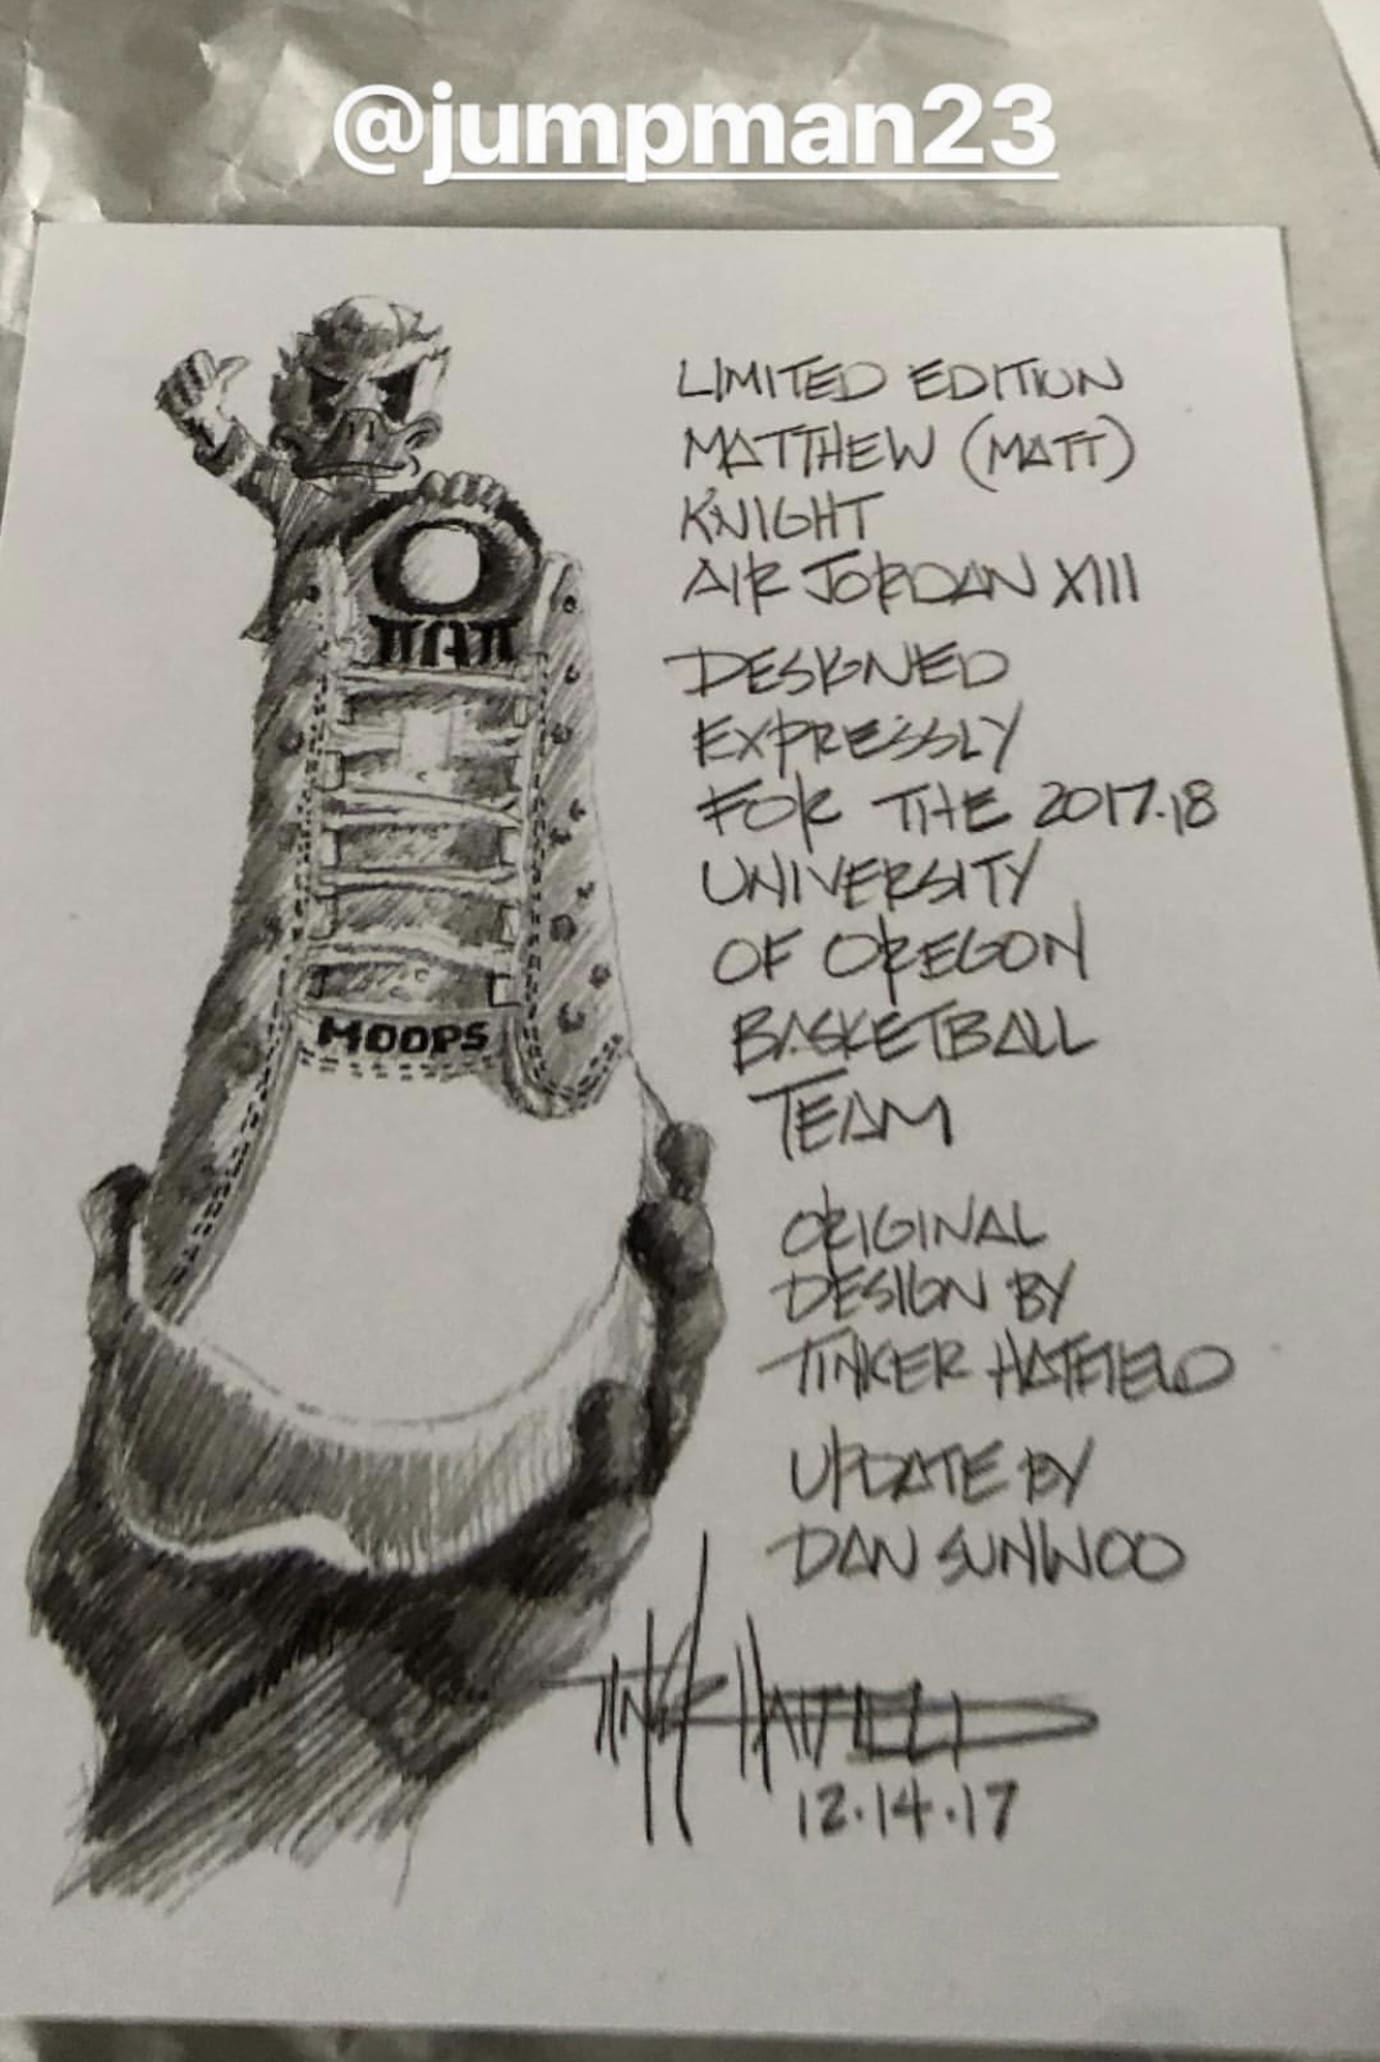 @jumpman23
LIMITED EDITION
MATTHEW (MATT)
KNIGHT
AIR JORDAN XIII
DESIGNED
EXPRESSLY
FOR THE 2017.18
UNIVERSITY
OF OREGON
BASKETBALL
TEAM
ORIGINAL
DESIGN BY
TINKER HATFIELD
UPDATE BY
DAN SUNWOO
TINKER HATFIELD
12.14.17
O
MATT
MOOPS